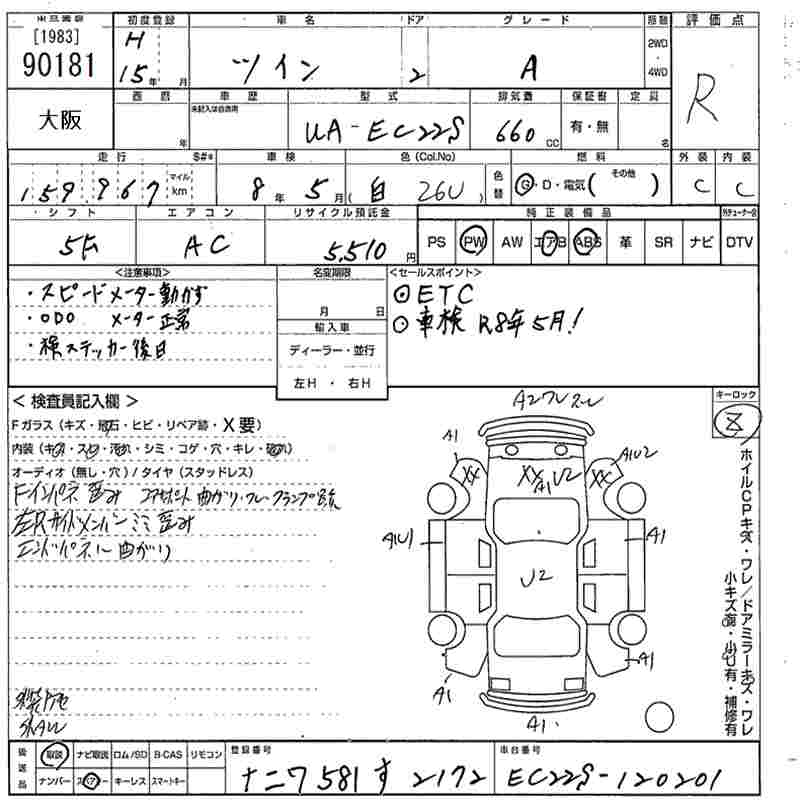 [1983]
90181
大阪
初度登録 車名 ドア グレード 駆動 評価点
H 15年 月 ツイン 2 A 2WD・4WD R
西暦 車歴 型式 排気量 保証書 定員
年 未記入は自家用 UA-EC22S 660 CC 有・無 名
走行 S#* 車検 色(Col.No) 燃料 外装 内装
159,967 マイル km 8年 5月 (白 26U) 色替 G・D・電気( その他 ) C C
シフト エアコン リサイクル預託金 純正装備品
5F AC 5,510円 PS PW AW エアB ABS 革 SR ナビ DTV
<注意事項> 名変期限 <セールスポイント>
・スピードメーター動かず
・ODO メーター正常
・検ステッカー後日
月 日
輸入車
ディーラー・並行
左H・右H
◎ETC
○車検 R8年5月!
<検査員記入欄>
Fガラス(キズ・飛石・ヒビ・リペア跡・X要)
内装(キズ・スレ・汚れ・シミ・コゲ・穴・キレ・破れ)
オーディオ(無し・穴)/タイヤ(スタッドレス)
Fインパネ歪み コアサポート曲がり・フレークランプ跡
左Rサイドメンバー 歪み
エンドパネル曲がり
キーロック
A2ワレスレ
A1
XX
XX
A1U2
XX
A1U2
A1U1
A1
U2
A1
A1
A1
ホイルCPキズ・ワレ/ドアミラーキズ・ワレ
小キズ有・小凹有・補修有
後送品 取説 ナビ取説 ロム/SD B-CAS リモコン
ナンバー スペアキー キーレス スマートキー
登録番号
ナニワ581 す 2172
車台番号
EC22S-120201